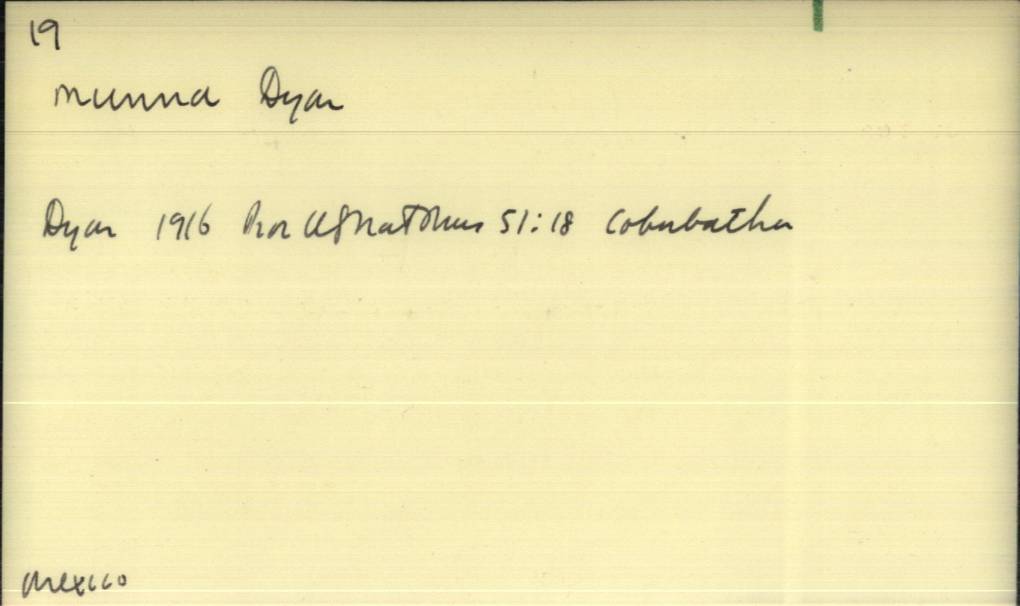 19
munna Dyar
Dyar 1916 Proc US Nat Mus 51:18 Cobubatha
Mexico